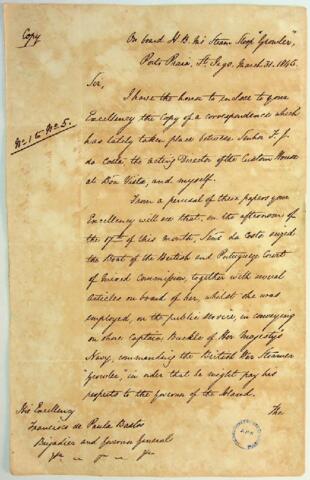 Copy
On board H. B. M's Steam Sloop "Growler",
Porto Praia, St. Iago. March 31. 1846.
No. 1 to No. 5.
Sir,
I have the honor to enclose to your
Excellency the copy of a correspondence which
has lately taken place between Senhor F. J.
da Costa, the acting Director of the Custom House
at Bôa Vista, and myself.
From a perusal of these papers your
Excellency will see that, in the afternoon of
the 17th of this month, Senr. da Costa seized
the Boat of the British and Portuguese Court
of Mixed Commission, together with several
articles on board of her, whilst she was
employed, on the public service, in conveying
on shore Captain Buckle of Her Majesty's
Navy, commanding the British War Steamer
"Growler", in order that he might pay his
respects to the Governor of the Island.
The
His Excellency
Francisco de Paula Bastos
Brigadier and Governor General